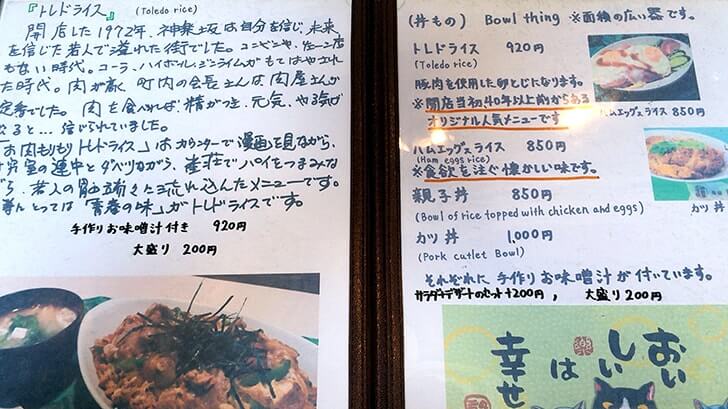 『トレドライス』 (Toledo rice)
開店した1972年、神楽坂は自分を信じ、未来
を信じた若人で溢れた街でした。コンビニや、チェーン店
もない時代。コーラ、ハイボール、ジンライムがもてはやされ
た時代。肉が高く町内の会長さんは、肉屋さんが
定番でした。肉を食べれば、精がつき、元気、やる気が
なると...信じられていました。
「お肉もりもりトレドライス」はカウンターで漫画を見ながら、
室の連中とダベリながら、雀荘でパイをつまみな
ら、若人の胃
込んだメニューです。
とっては「青春の味」がトレドライスです。
手作りお味噌汁付き 920円
大盛り 200円
(丼もの) Bowl thing ※面積の広い器です。
トレドライス 920円
(Toledo rice)
豚肉を使用した卵とじになります。
※開店当初40年以上前からある
オリジナル人気メニューです
ハムエッグスライス 850円
ハムエッグスライス 850円
(Ham eggs rice)
※食欲を注ぐ懐かしい味です。
親子丼 850円
(Bowl of rice topped with chicken and eggs)
カツ丼
カツ丼 1,000円
(Pork cutlet Bowl)
それぞれに手作りお味噌汁が付いています。
サラダ+デザートのセット+200円, 大盛り200円
おいしいは幸せ